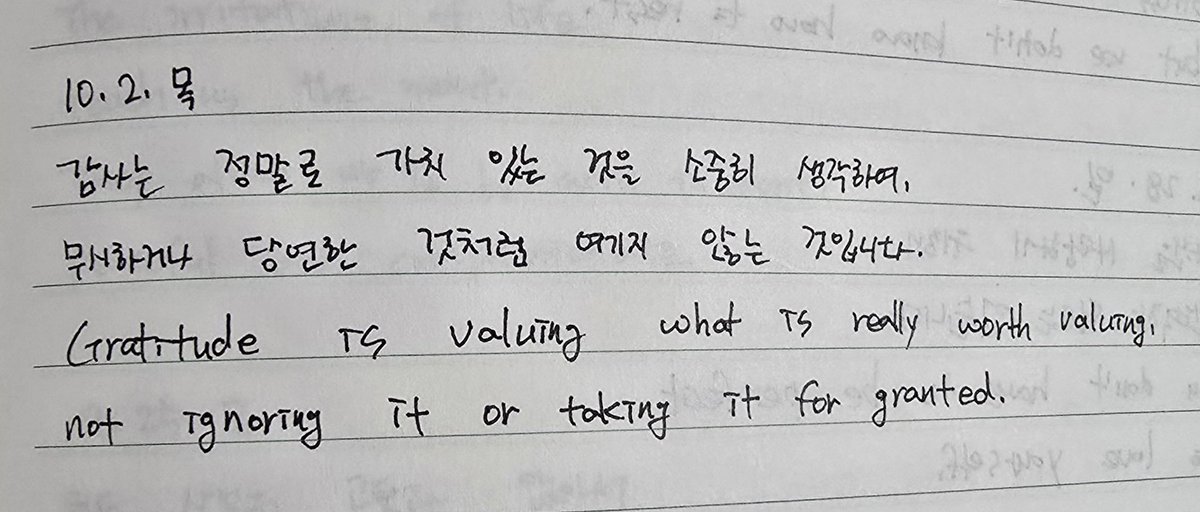 10. 2. 목
감사는 정말로 가치 있는 것을 소중히 생각하여,
무시하거나 당연한 것처럼 여기지 않는 것입니다.
Gratitude is valuing what is really worth valuing,
not ignoring it or taking it for granted.